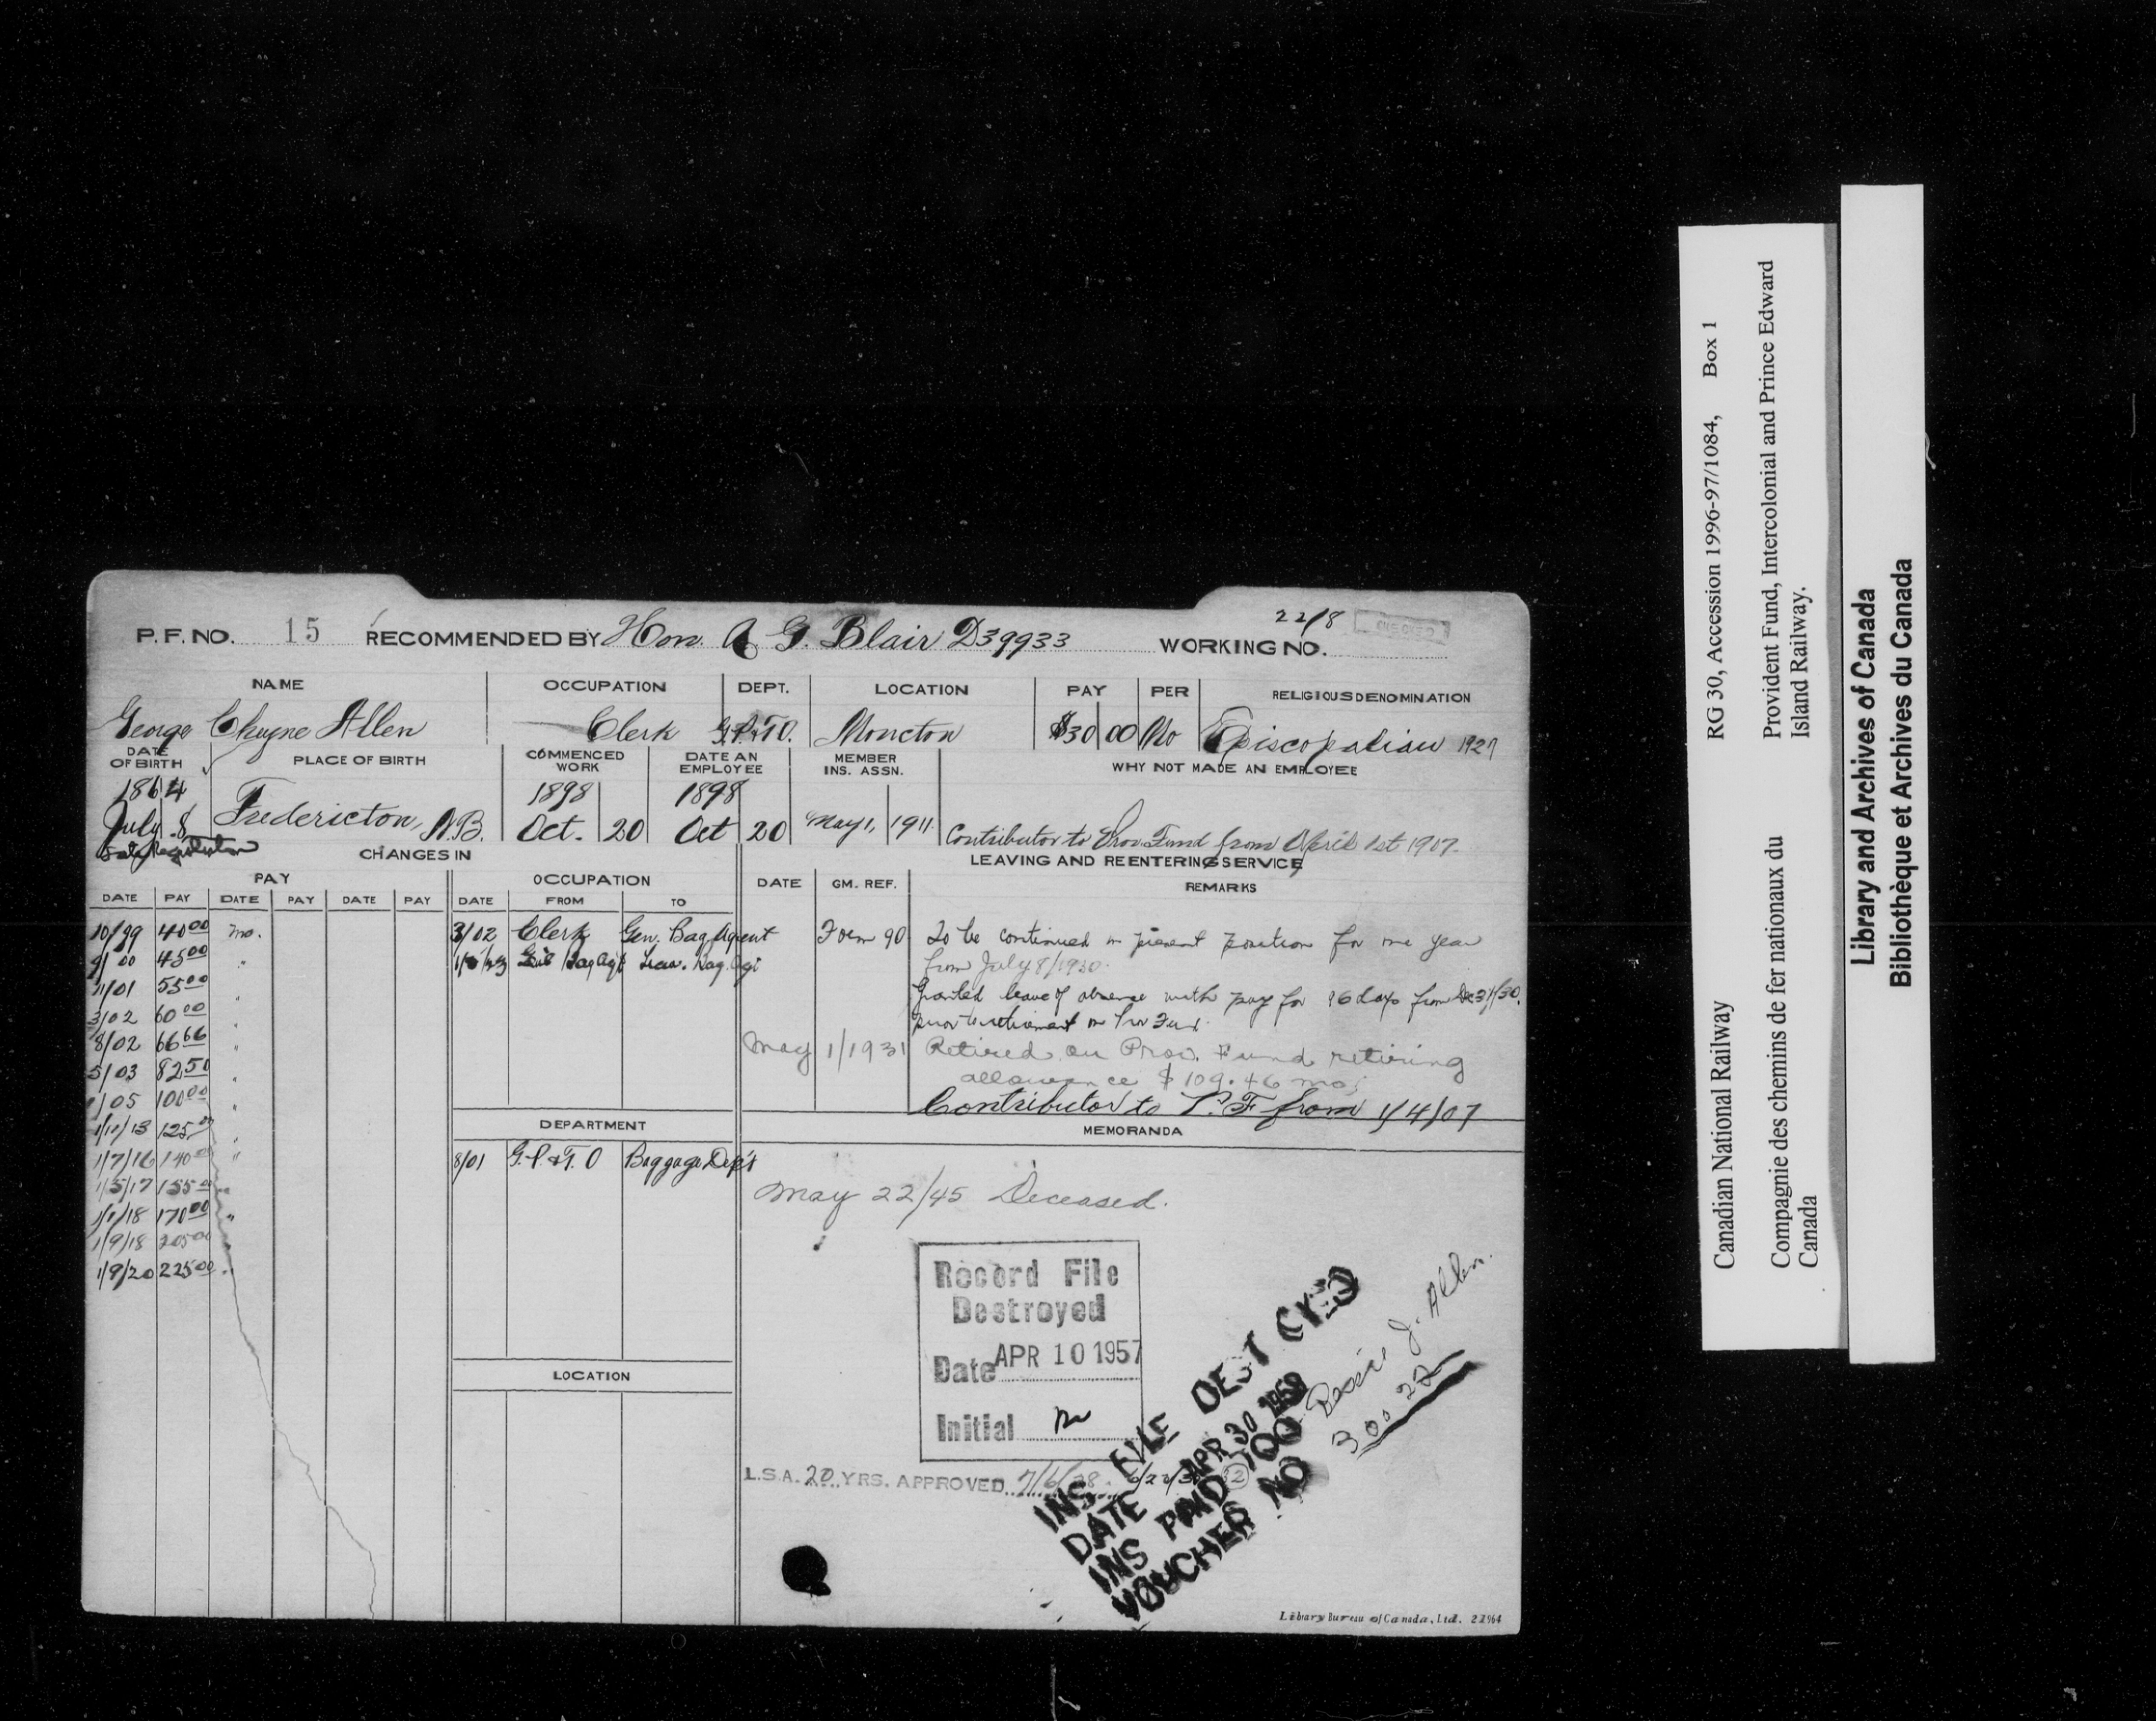 22/8
P.F. NO. 15 RECOMMENDED BY Hon. A G. Blair D39933 WORKING NO.
NAME OCCUPATION DEPT. LOCATION PAY PER RELIGIOUS DENOMINATION
George Cheyne Allen Clerk G.P.&T.O. Moncton $30 00 Mo Episcopalian 1927
DATE OF BIRTH PLACE OF BIRTH COMMENCED WORK DATE AN EMPLOYEE MEMBER INS. ASSN. WHY NOT MADE AN EMPLOYEE
1864 1898 1898
July 8 Fredericton, N.B. Oct. 20 Oct 20 May 1, 1911. Contributor to Prov. Fund from April 1st 1907.
CHANGES IN
LEAVING AND REENTERING SERVICE
PAY
DATE PAY DATE PAY DATE PAY
10/99 40 00 mo.
9/00 45 00 "
11/01 55 00 "
3/02 60 00 "
8/02 66 66 "
5/03 82 50 "
1/05 100 00 "
1/11/13 125 00 "
1/7/16 140 00 "
1/5/17 155 00 "
1/1/18 170 00 "
1/9/18 205 00 "
1/9/20 225 00 "
OCCUPATION
DATE FROM TO
3/02 Clerk Gen. Bag Agent
Bag Agt Bag. Agt
DEPARTMENT
8/01 G.P. & T. O Baggage Dep't
LOCATION
DATE GM. REF. REMARKS
Form 90 To be continued in present position for one year
from July 8/1930.
Granted leave of absence with pay for 96 days from Dec 31/30.
prior to retirement on Prov Fund.
May 1/1931 Retired on Prov. Fund retiring
allowance $109.46 mo.
Contributor to P.F from 1/4/07
MEMORANDA
May 22/45 Deceased.
Record File
Destroyed
Date APR 10 1957
Initial
L.S.A. 20 YRS. APPROVED 7/6/28.
INS. FILE DEST CYED
DATE APR 30 1959
INS PAID
VOUCHER NO
Bessie J. Allen.
300 22
Library Bureau of Canada, Ltd. 22964
Canadian National Railway RG 30, Accession 1996-97/1084, Box 1
Compagnie des chemins de fer nationaux du Canada
Provident Fund, Intercolonial and Prince Edward Island Railway.
Library and Archives of Canada
Bibliothèque et Archives du Canada